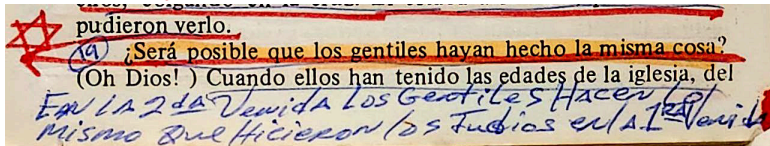 pudieron verlo.
19 ¿Será posible que los gentiles hayan hecho la misma cosa?
(Oh Dios! ) Cuando ellos han tenido las edades de la iglesia, del
EN LA 2da Venida Los Gentiles Hacen lo
mismo que Hicieron los Judios en la 1ra Venida